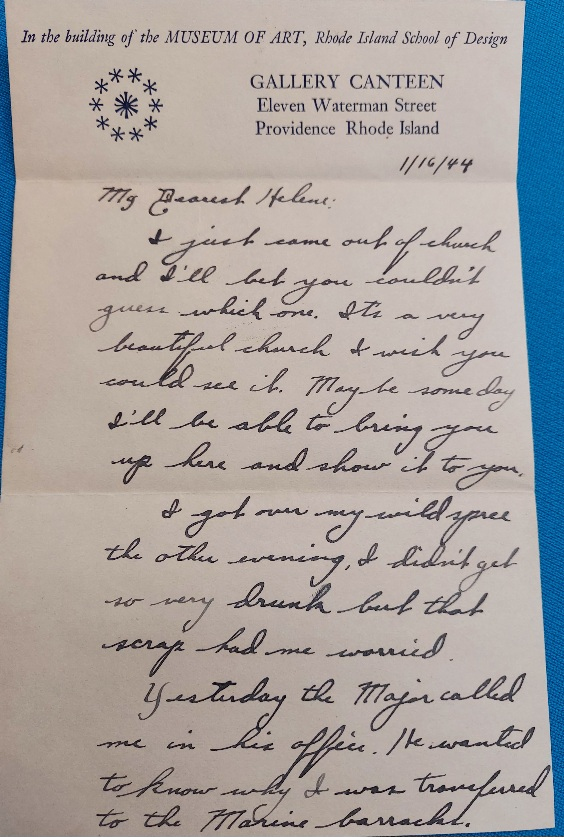 In the building of the MUSEUM OF ART, Rhode Island School of Design
GALLERY CANTEEN
Eleven Waterman Street
Providence Rhode Island
1/16/44
My Dearest Helene:
I just came out of church
and I'll bet you couldn't
guess which one. It's a very
beautiful church I wish you
could see it. Maybe someday
I'll be able to bring you
up here and show it to you.
I got over my wild spree
the other evening, I didn't get
so very drunk but that
scrap had me worried.
Yesterday the Major called
me in his office. He wanted
to know why I was transferred
to the Marine barracks.